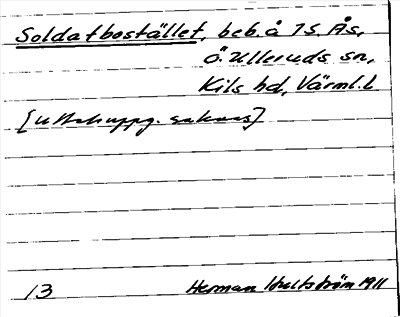 Soldatbostället, beb. å IS. Ås,
Ö. Ulleruds sn,
Kils hd, Värml. l
[uttalsuppg. saknas]
13 Herman Hultström 1911